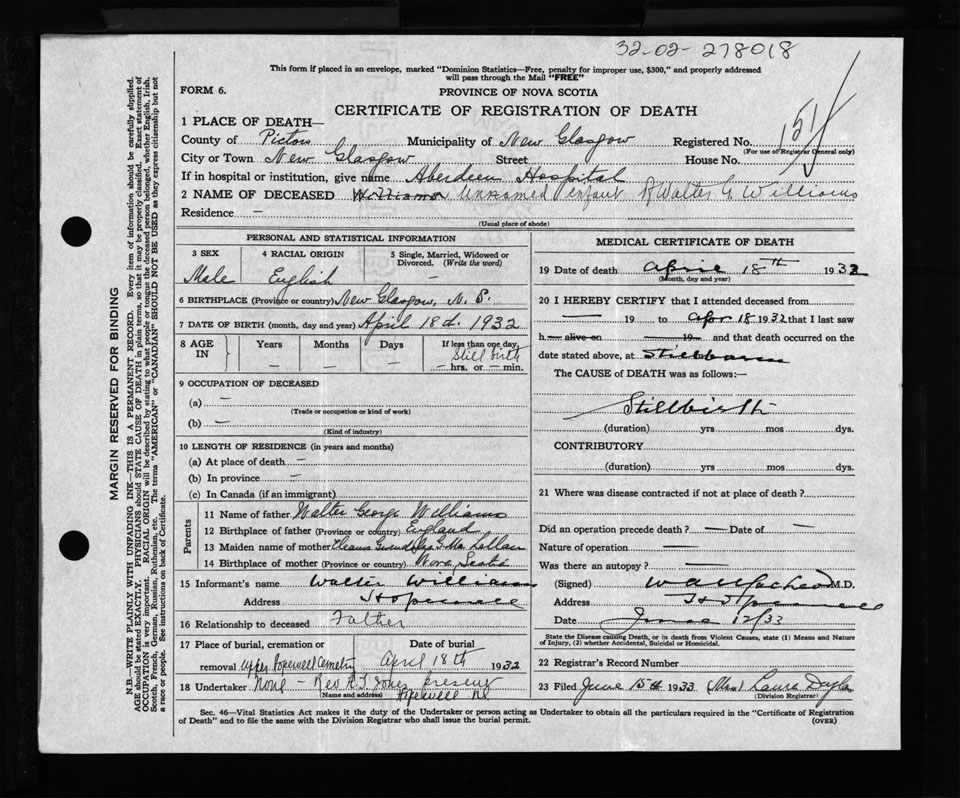 32-02-278018
This form if placed in an envelope, marked "Dominion Statistics—Free, penalty for improper use, $300," and properly addressed
will pass through the Mail "FREE"
FORM 6.
PROVINCE OF NOVA SCOTIA
CERTIFICATE OF REGISTRATION OF DEATH
151
1 PLACE OF DEATH—
County of Pictou Municipality of New Glasgow Registered No.
(For use of Registrar General only)
City or Town New Glasgow Street House No.
If in hospital or institution, give name Aberdeen Hospital
2 NAME OF DECEASED Williams Unnamed infant of Walter G. Williams
Residence —
(Usual place of abode)
PERSONAL AND STATISTICAL INFORMATION
3 SEX Male
4 RACIAL ORIGIN English
5 Single, Married, Widowed or Divorced. (Write the word) —
6 BIRTHPLACE (Province or country) New Glasgow, N. S.
7 DATE OF BIRTH (month, day and year) April 18th. 1932
8 AGE IN Years — Months — Days — If less than one day, Still birth — hrs. or — min.
9 OCCUPATION OF DECEASED
(a) —
(Trade or occupation or kind of work)
(b) —
(Kind of industry)
10 LENGTH OF RESIDENCE (in years and months)
(a) At place of death —
(b) In province —
(c) In Canada (if an immigrant)
Parents
11 Name of father Walter George Williams
12 Birthplace of father (Province or country) England
13 Maiden name of mother
14 Birthplace of mother (Province or country) Nova Scotia
15 Informant's name Walter Williams
Address Hopewell
16 Relationship to deceased Father
17 Place of burial, cremation or Date of burial
removal Upper Hopewell Cemetery April 18th 1932
18 Undertaker None — Rev A. T. Jones present
(Name and address) Hopewell NS
MEDICAL CERTIFICATE OF DEATH
19 Date of death April 18TH 1932
(Month, day and year)
20 I HEREBY CERTIFY that I attended deceased from
— 19 to Apr 18 1932 that I last saw
h— alive on — 19— and that death occurred on the
date stated above, at Stillborn
The CAUSE of DEATH was as follows:—
Stillbirth
(duration) yrs mos dys.
CONTRIBUTORY
(duration) yrs. mos dys.
21 Where was disease contracted if not at place of death?
Did an operation precede death? — Date of —
Nature of operation —
Was there an autopsy? —
(Signed) M.D.
Address Hopewell
Date June 12/33
State the Disease causing Death, or in death from Violent Causes, state (1) Means and Nature
of Injury, (2) whether Accidental, Suicidal or Homicidal.
22 Registrar's Record Number
23 Filed June 15th 1933 (Mrs) Laura
(Division Registrar)
Sec. 46—Vital Statistics Act makes it the duty of the Undertaker or person acting as Undertaker to obtain all the particulars required in the "Certificate of Registration
of Death" and to file the same with the Division Registrar who shall issue the burial permit.
(OVER)
MARGIN RESERVED FOR BINDING
N.B.—WRITE PLAINLY WITH UNFADING INK—THIS IS A PERMANENT RECORD. Every item of information should be carefully supplied.
AGE should be stated EXACTLY. PHYSICIANS should STATE CAUSE OF DEATH in plain terms, so that it may be properly classified. Exact statement of
OCCUPATION is very important. RACIAL ORIGIN will be described by stating to what people or tongue the deceased person belonged, whether English, Irish,
Scotch, French, German, Russian, Ruthenian, etc. The terms "AMERICAN" or "CANADIAN" SHOULD NOT BE USED as they express citizenship but not
a race or people. See instructions on back of Certificate.